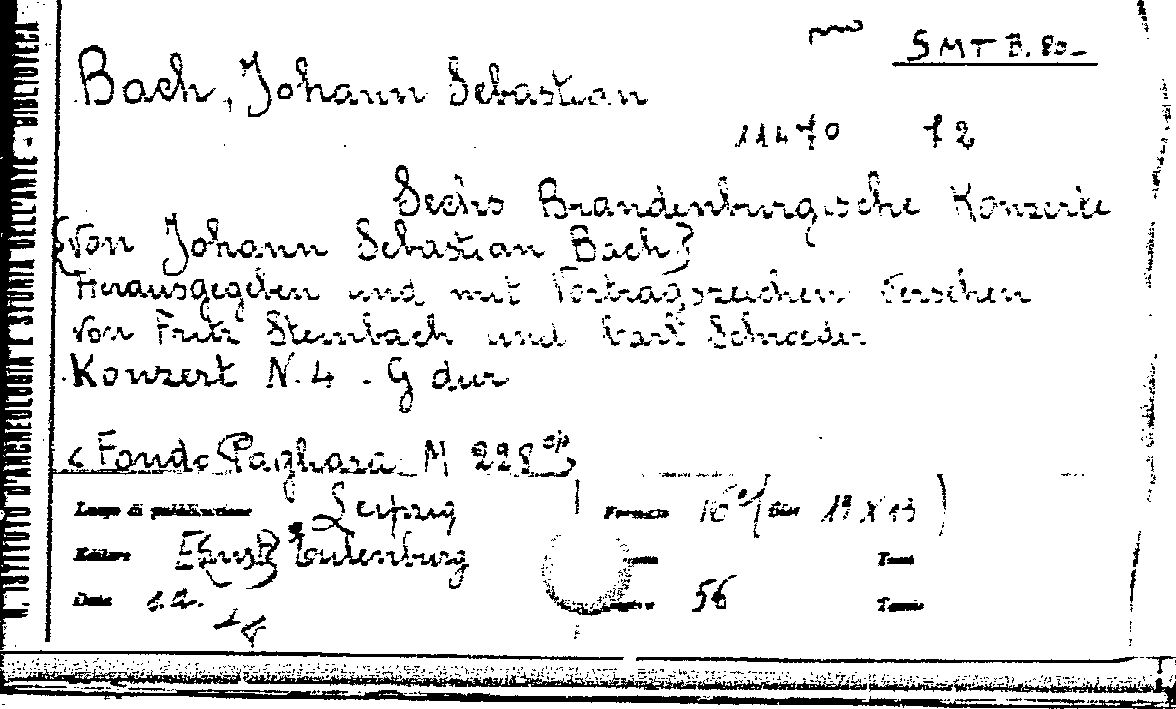 SMT B. 80-
Bach, Johann Sebastian
11470 72
Sechs Brandenburgische Konzerte
{von Johann Sebastian Bach}
Herausgegeben und mit Vortragszeichen versehen
von Fritz Steinbach und Carl Schroeder
Konzert N. 4 - G dur
< Fondo Pagliara M 228
Luogo di pubblicazione Leipzig
Formato 16° 19 x 13)
Editore Ernst Eulenburg
Tomi
Data s.a.
56
N. ISTITUTO D'ARCHEOLOGIA E STORIA DELL'ARTE - BIBLIOTECA